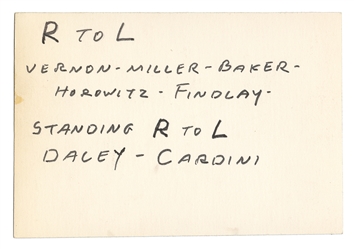 R TO L
VERNON - MILLER - BAKER -
HOROWITZ - FINDLAY -
STANDING R TO L
DALEY - CARDINI